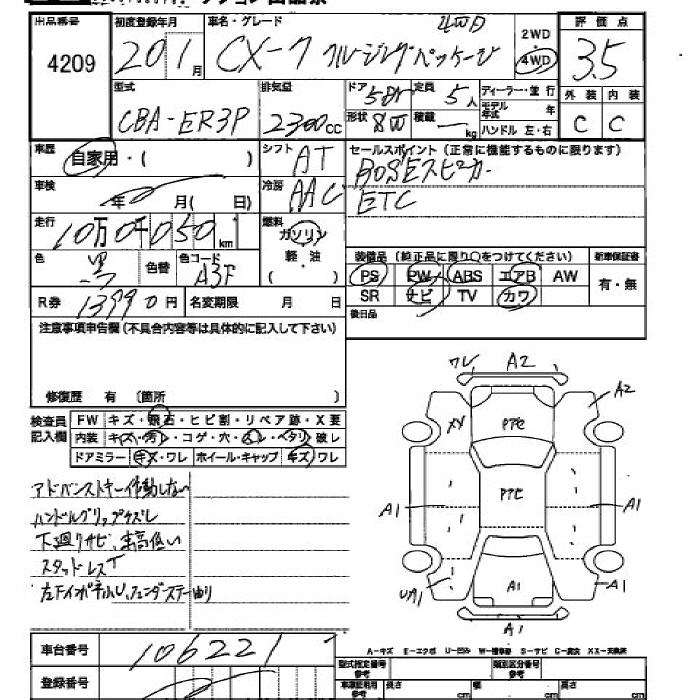 出品番号 初度登録年月 車名・グレード 4WD 2WD 評価点
4209 20 1月 CX-7 クルージングパッケージ 4WD 3.5
型式 排気量 ドア 5DR 定員 5人 ディーラー・並行 外装 内装
CBA-ER3P 2300cc 形状 8W 積載 — kg モデル年式 年 C C
ハンドル 左・右
車歴 自家用・( ) シフト AT セールスポイント(正常に機能するものに限ります)
車検 年 月( 日) 冷房 AAC BOSEスピーカー
ETC
走行 10万0千050km 燃料 ガソリン
軽・油
( )
色 黒 色替 色コード A3F
装備品(純正品に限り○をつけてください) 新車保証書
PS PW ABS エアB AW 有・無
SR ナビ TV カワ
R券 13990円 名変期限 月 日 後日品
注意事項申告欄(不具合内容等は具体的に記入して下さい)
修復歴 有 (箇所 )
検査員記入欄 FW キズ・飛石・ヒビ割・リペア跡・X要
内装 キズ・汚・コゲ・穴・ムレ・ヘタリ・破レ
ドアミラー キズ・ワレ ホイール・キャップ キズ・ワレ
アドバンストキー作動しない
ハンドルグリップスレ
下廻りサビ、車高低い
スタッドレスT
ワレ A2
A2
XY PTC
PTC
A1 A1
UA1 A1 A1
A1
A-キズ E-エクボ U-凹み W-補修跡 S-サビ C-腐食 XX-交換済
車台番号 106221 型式指定番号 参考 類別区分番号 参考
登録番号 車庫証明用 参考 長さ cm 幅 cm 高さ cm